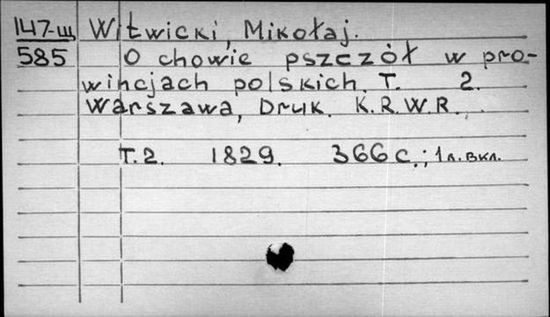 147-щ Witwicki, Mikołaj.
585 O chowie pszczół w pro-
wincjach polskich. T. 2.
Warszawa, Druk. K.R.W.R.
T.2. 1829. 366 с.; 1 л. вкл.